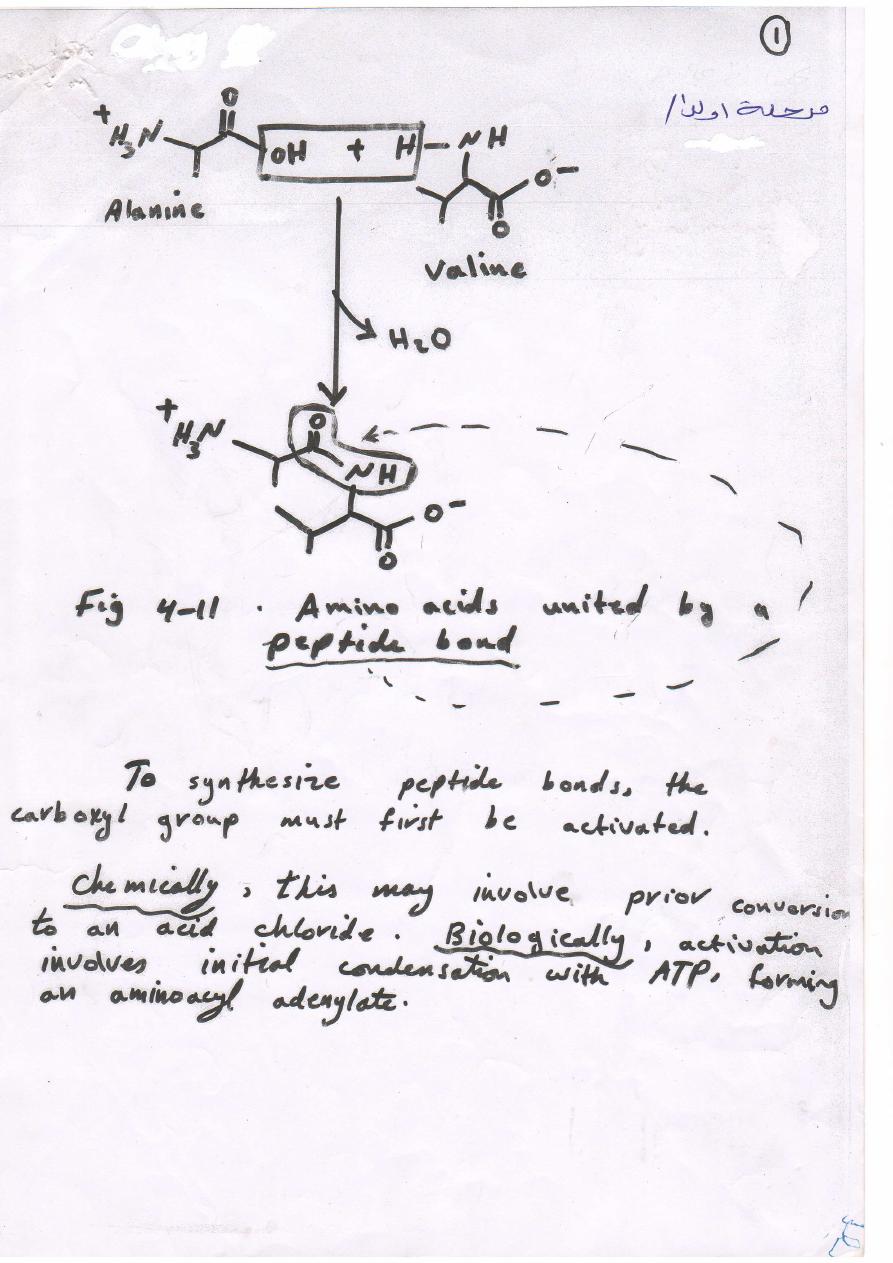 1
مرحلة اولى/
+
H3N
O
OH + H - N H
O-
O
Alanine
Valine
H2O
+
H3N
O
N H
O-
O
Fig 4-11 . Amino acids united by a
peptide bond
To synthesize peptide bonds, the
carboxyl group must first be activated.
Chemically, this may involve prior conversion
to an acid chloride. Biologically, activation
involves initial condensation with ATP, forming
an aminoacyl adenylate.